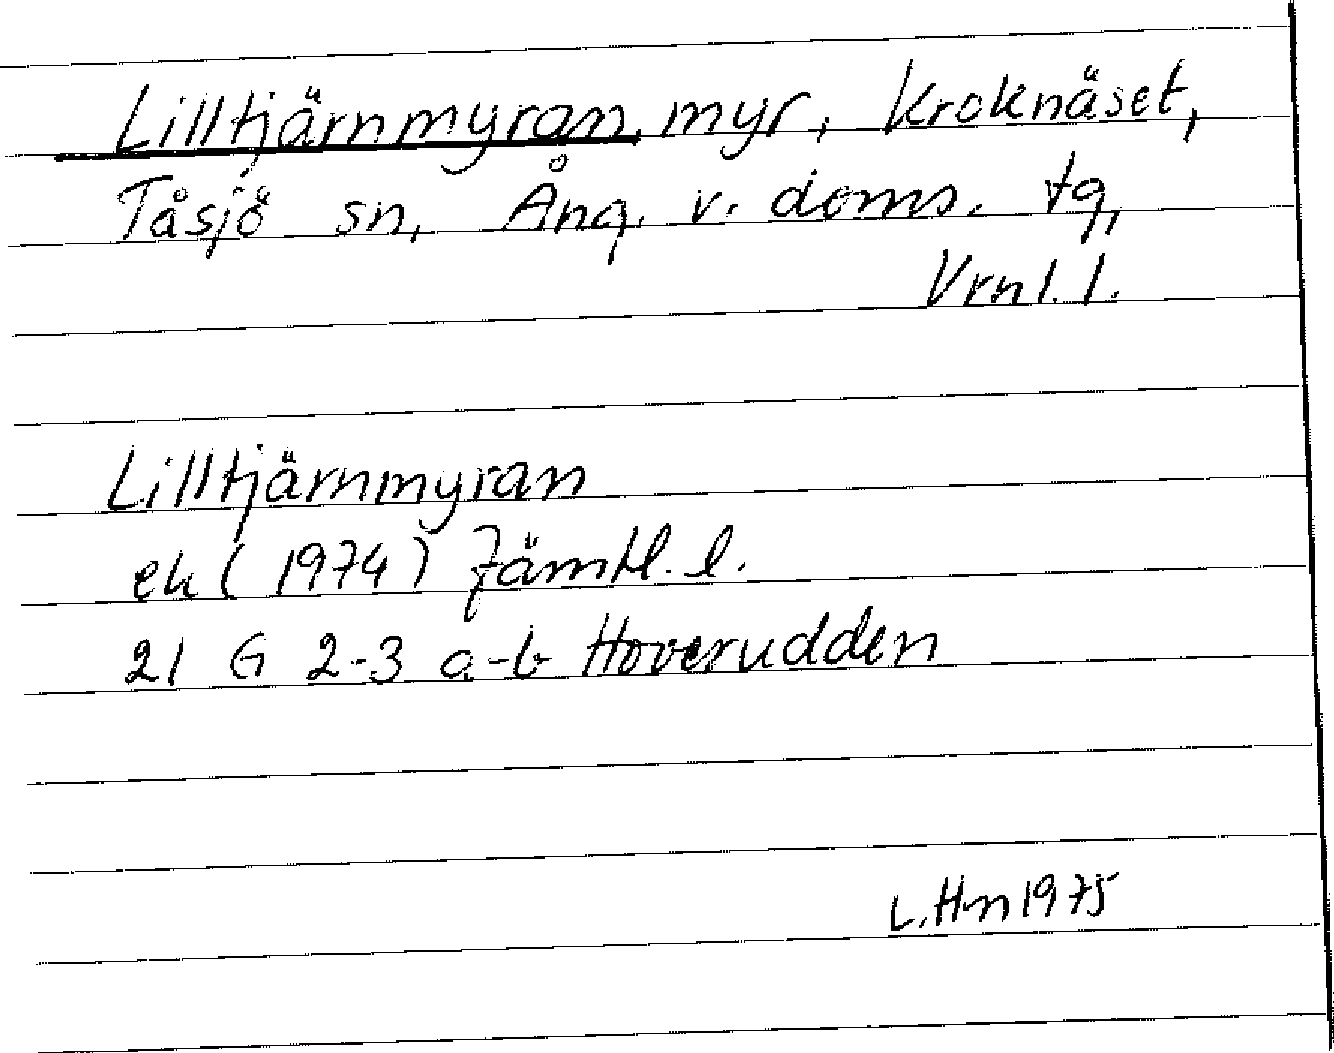 Lilltjärnmyran, myr, Kroknäset,
Tåsjö sn, Ång. v. doms. tg,
Vrnl. l.
Lilltjärnmyran
ek (1974) Jämtl. l.
21 G 2-3 a-b Hoverudden
L. Hn 1975